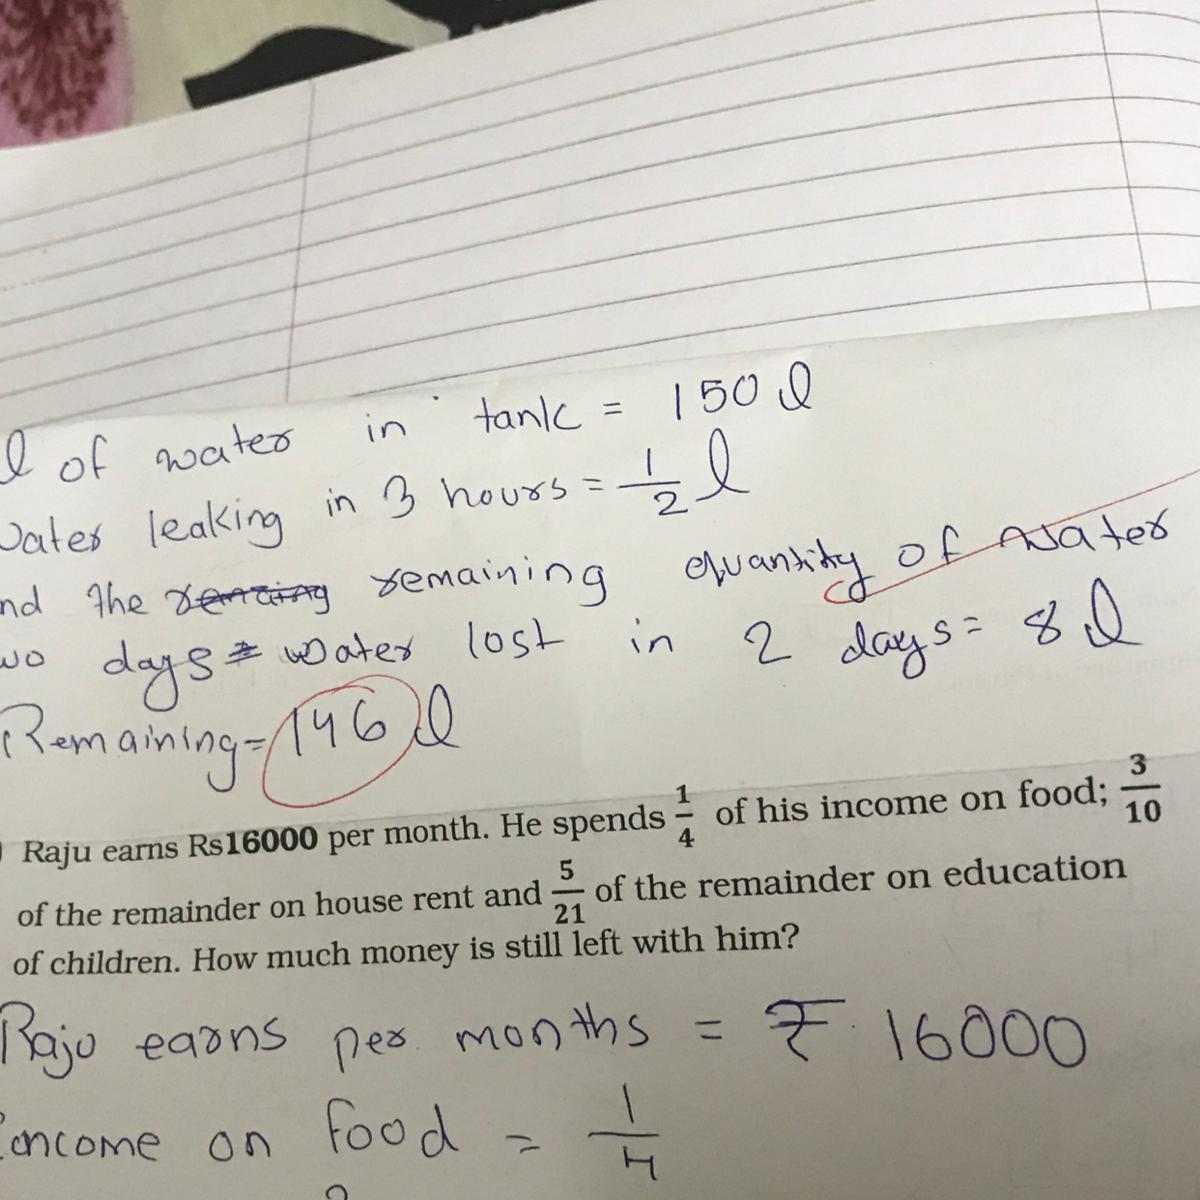 l of water in tank = 150 l
Water leaking in 3 hours = 1/2 l
nd the remaining quantity of water
wo days = Water lost in 2 days = 8 l
Remaining = 146 l
Raju earns Rs16000 per month. He spends 1/4 of his income on food; 3/10
of the remainder on house rent and 5/21 of the remainder on education
of children. How much money is still left with him?
Raju earns per months = ₹ 16000
income on food = 1/4